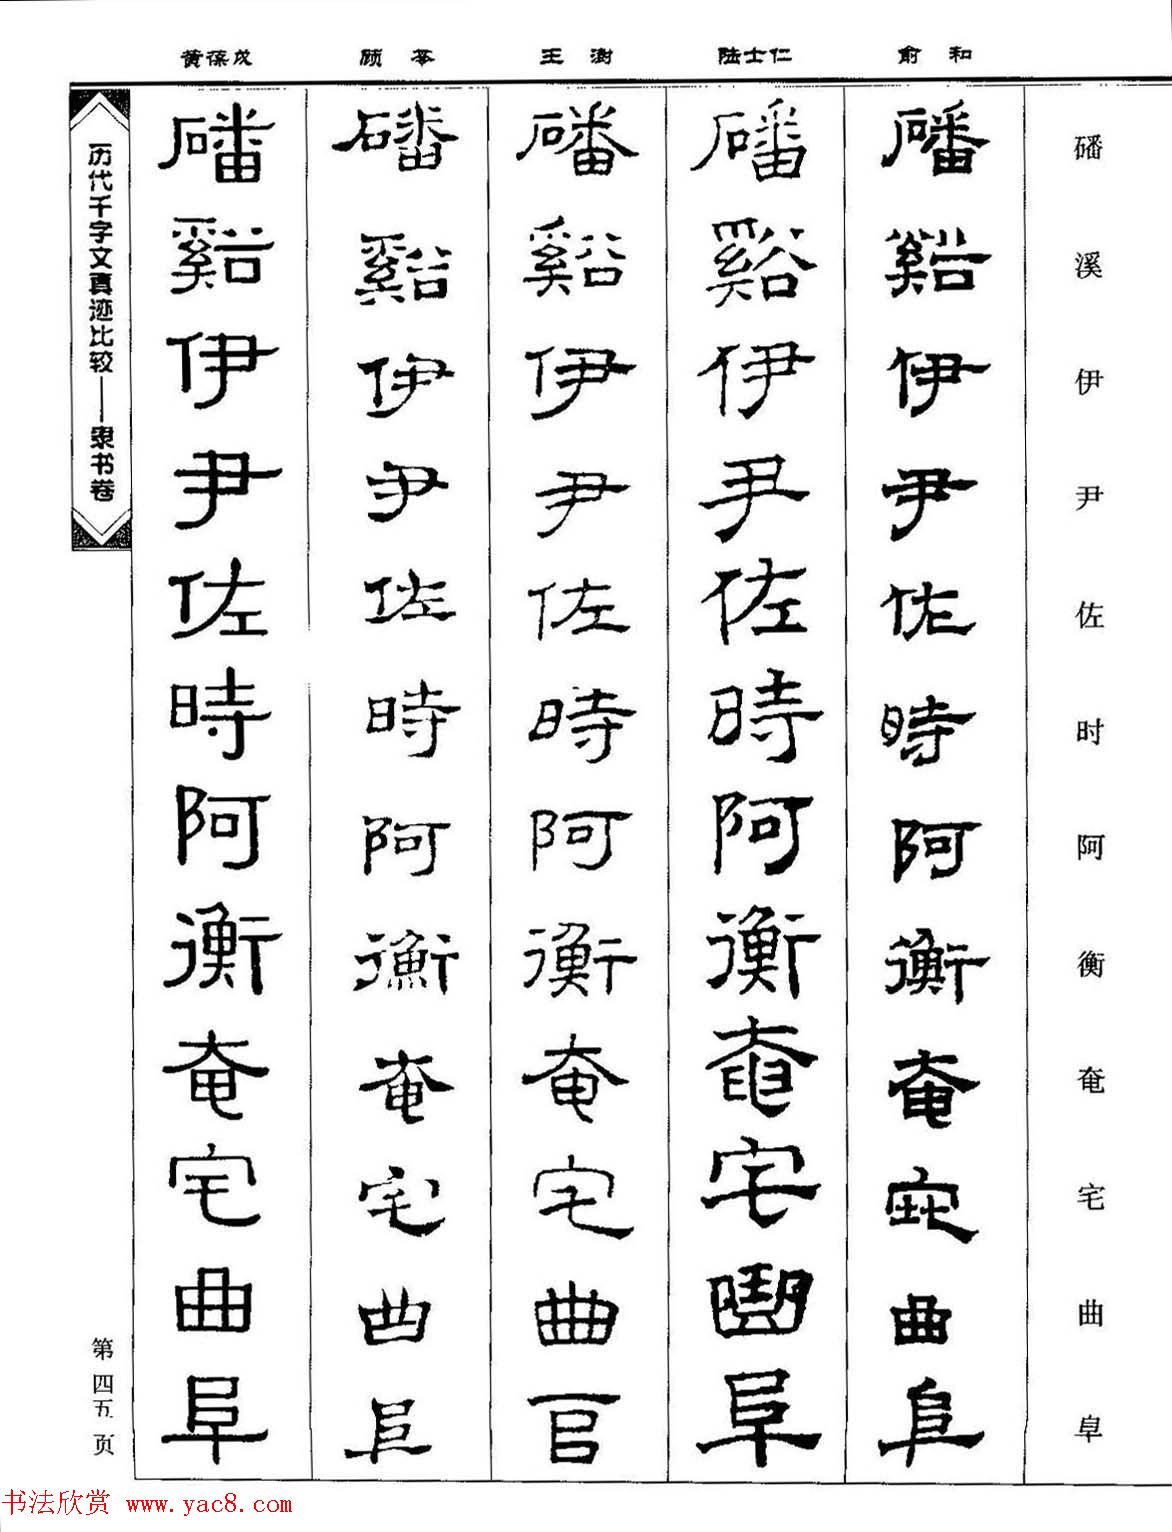 黄葆戉 顾苓 王澍 陆士仁 俞和
磻溪伊尹佐时阿衡奄宅曲阜
磻谿伊尹佐時阿衡奄宅曲阜
磻谿伊尹佐時阿衡奄宅曲阜
磻谿伊尹佐時阿衡奄宅曲阜
磻谿伊尹佐時阿衡奄宅曲阜
磻谿伊尹佐時阿衡奄宅曲阜
历代千字文真迹比较——隶书卷
第四五页
书法欣赏 www.yac8.com